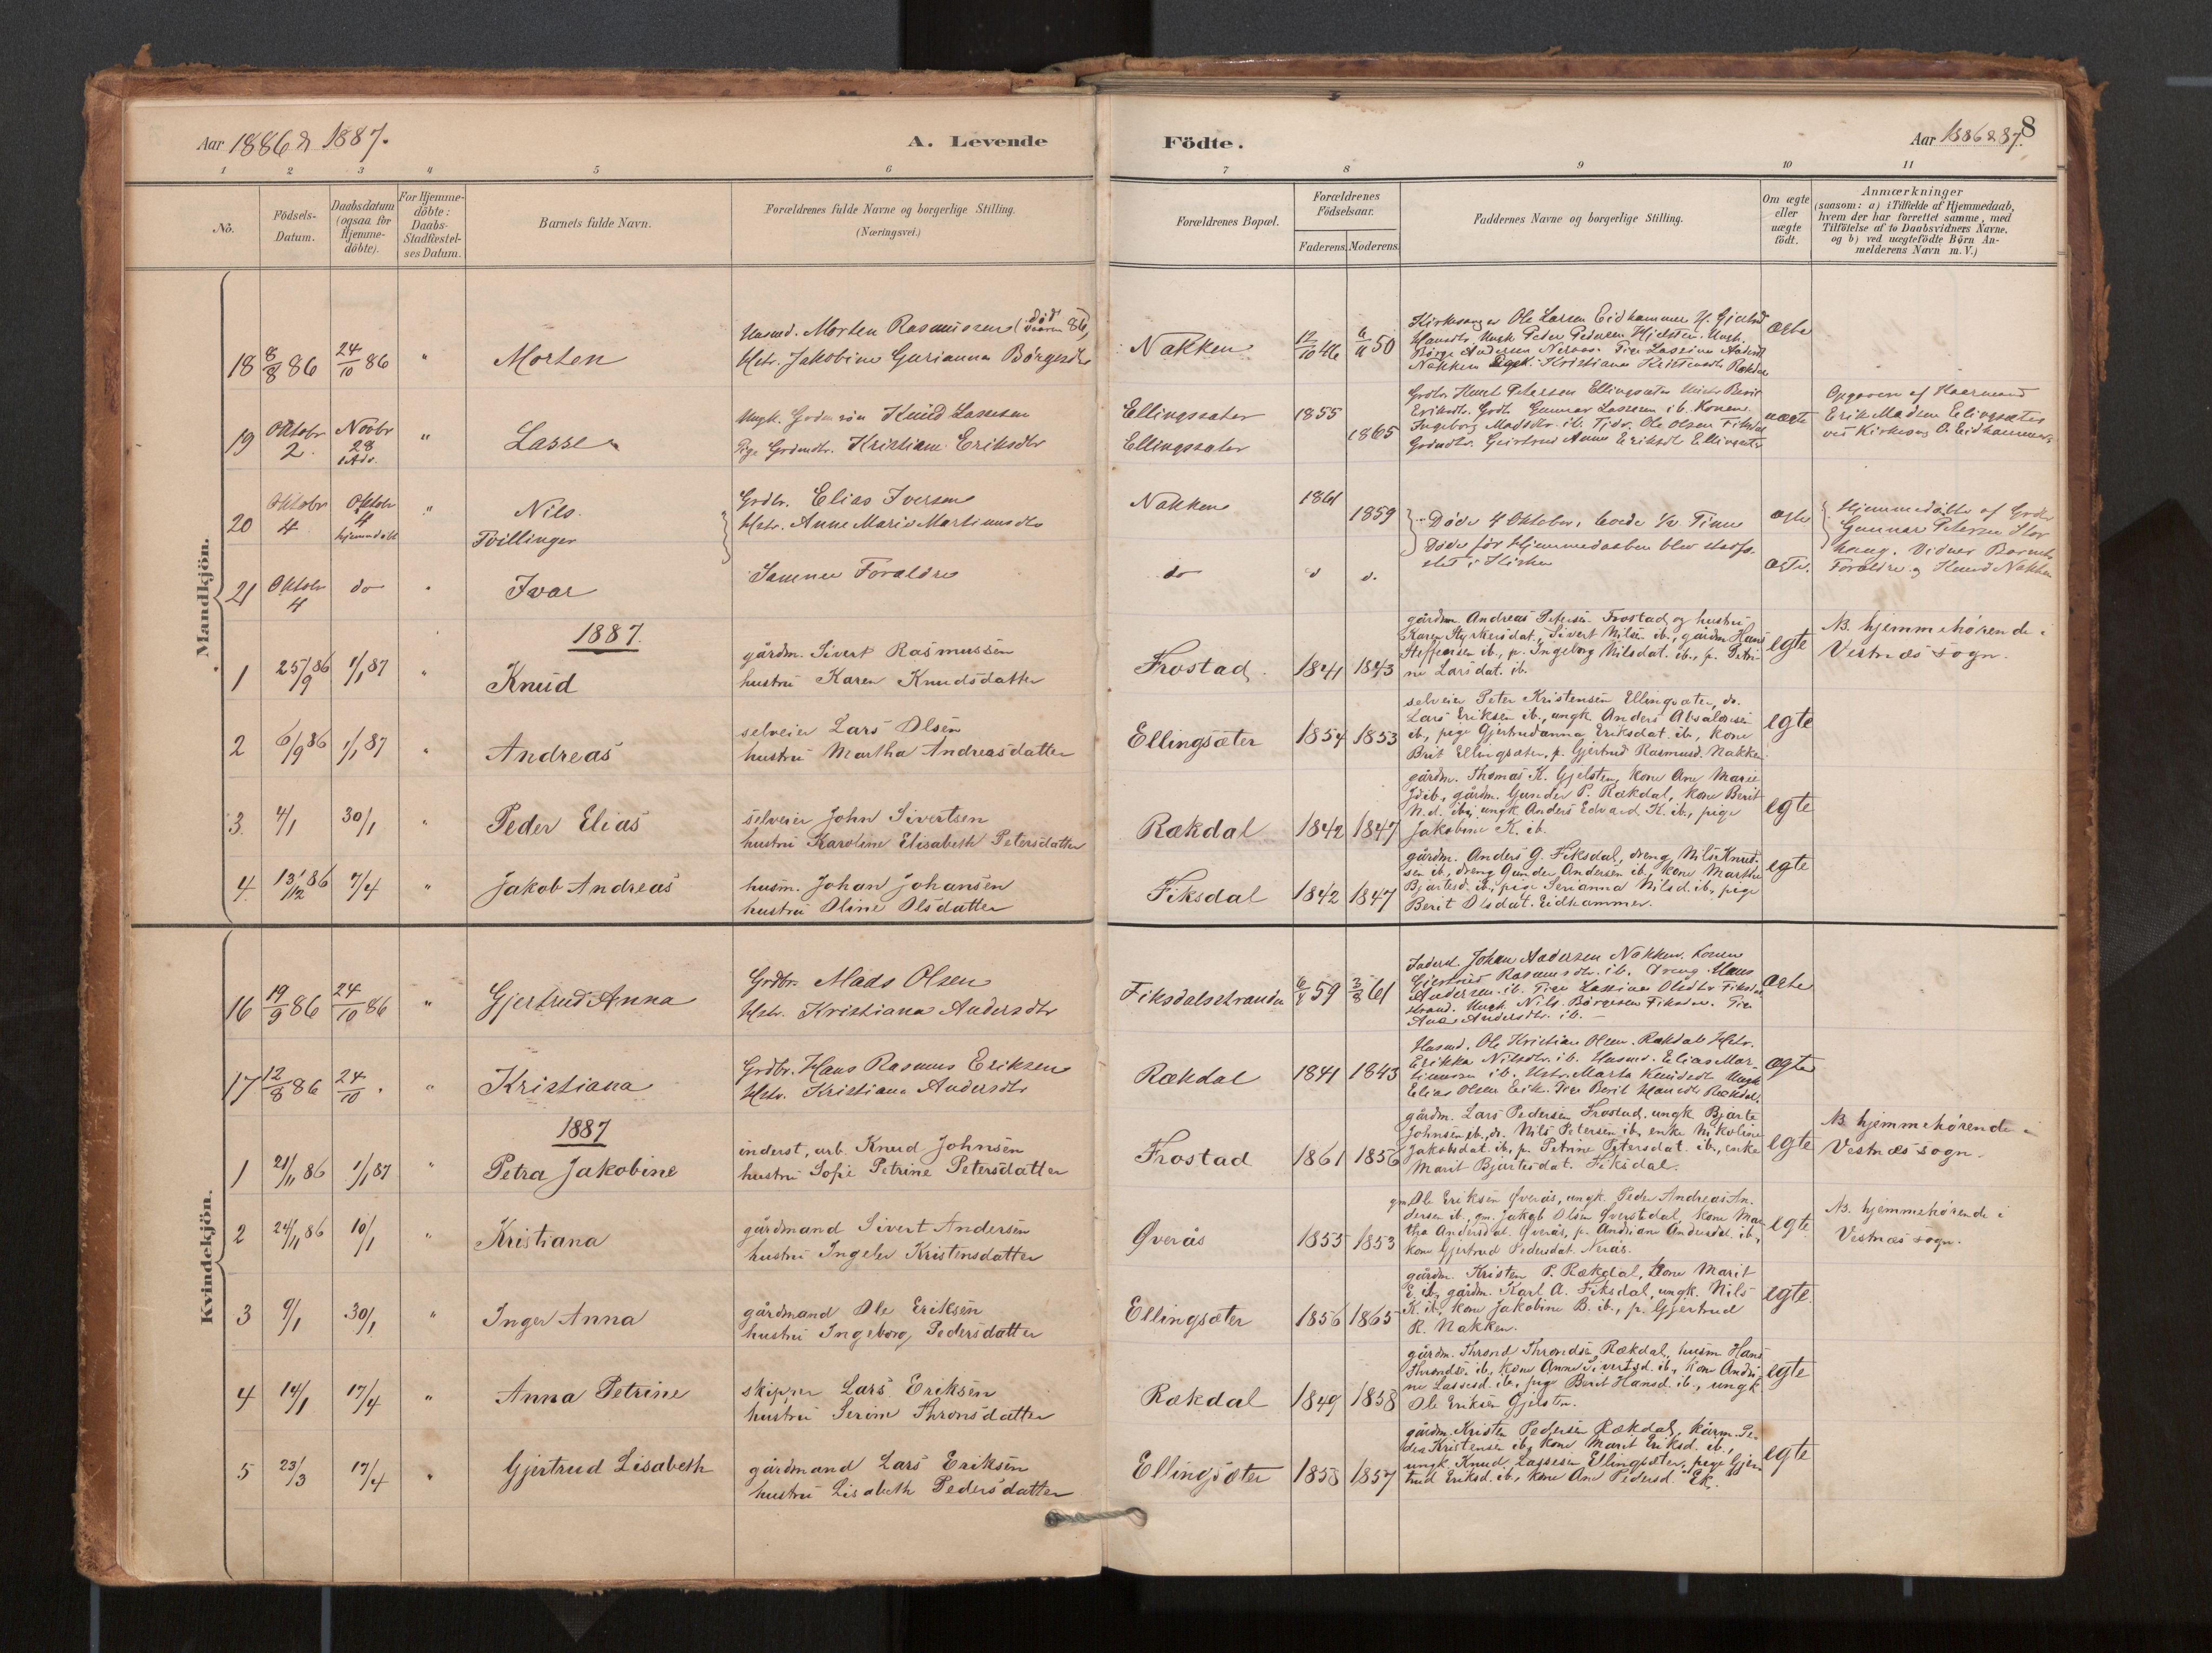 Aar 1886 & 1887.
A. Levende
Födte.
Aar 1886 & 87.
8
1 2 3 4 5 6 7 8 9 10 11
No.
Födsels-
Datum.
Daabsdatum
(ogsaa for
Hjemme-
döbte).
For Hjemme-
döbte:
Daabs-
Stadfæstel-
ses Datum.
Barnets fulde Navn.
Forældrenes fulde Navne og borgerlige Stilling.
(Næringsvei.)
Forældrenes Bopæl.
Forældrenes
Födselsaar.
Faderens. Moderens.
Faddernes Navne og borgerlige Stilling.
Om ægte
eller
uægte
födt.
Anmærkninger
(saasom: a) i Tilfælde af Hjemmedaab,
hvem der har forrettet samme, med
Tilföielse af to Daabsvidners Navne,
og b) ved uægtefödte Börn An-
melderens Navn m. V.)
Mandkjön.
18 8/8 86 24/10 86 " Morten
Husmd. Morten Rasmussen (død vaaren 86)
Hstr. Jakobine Gurianna Børgesdtr
Nakken 12/10 46 6/11 50
Kirkesanger Ole Larsen Eidhammer
Nakken Kristiane
ægte
19 Oktobr 2. Novbr 28 1 Adv. " Lasse
Ungk. Knud Lassesen
Pige Kristiane Eriksdtr
Ellingsæter 1855
Ellingsæter 1865
Ingeborg Madsdtr. ib. Ole Olsen Fiksdal
Anne Eriksdt Ellingsæter
uægte
Opgaven af
Erik Madsen Elingsæter
20 Oktobr 4 Oktobr 4 hjemmdøbt " Nils.
Tvillinger
Grdbr. Elias Iversen
Hstr. Anne Marie Martinusdtr
Nakken 1861 1859
Døde 4 Oktober, levede 1/2 Time
Døde før Hjemmedaaben blev stadfæ-
stet i Kirken
ægte
Hjemmedøbte af
Gunnar Petersen
haug. Vidner Barnets
Forældre og Knud Nakken
21 Oktobr 4 do " Ivar
Samme Forældre
do d d.
ægte.
1887.
1 25/9 86 1/1 87 " Knud
gårdm. Sivert Rasmussen
hustru Karen Knudsdatter
Frostad. 1841 1843
gårdm. Andreas Petersen Frostad og hustru
Karen Styrkersdat., Sivert Nilsen ib., gårdm Hans
Steffensen ib., p. Ingeborg Nilsdat. ib., p. Petri-
ne Larsdat. ib.
egte
NB. hjemmehørende i
Vestnæs sogn.
2 6/9 86 1/1 87 " Andreas
selveier Lars Olsen
hustru Martha Andreasdatter
Ellingsæter 1854 1853
selveier Peter Kristensen Ellingsæter, do.
Lars Eriksen ib., ungk Anders Absalonsen
ib., pige Gjertrudanna Eriksdat. ib., kone
Brit Ellingsæter, p. Gjertrud Rasmusd. Nakken.
egte
3. 4/1 30/1 " Peder Elias
selveier John Sivertsen
hustru Karoline Elisabeth Petersdatter
Rækdal 1842 1847
gårdm. Thomas K. Gjelsten, kone Ane Marie
ib., gårdm. Gunder P. Rækdal, kone Berit
N.d. ib., ungk Anders Edvard K. ib., pige
Jakobine K. ib.
egte
4. 13/12 86 7/4 " Jakob Andreas
husm. Johan Johansen
hustru Oline Olsdatter
Fiksdal 1842 1847
gårdm. Anders G. Fiksdal, dreng Nils Knud-
sen ib., dreng Gunder Andersen ib., kone Marthe
Bjartesd. ib., pige Serianna Nilsd. ib., pige
Berit Olsdat. Eidhammer.
egte
Kvindekjön.
16 19/9 86 24/10 86 " Gjertrud Anna
Grdbr. Mads Olsen
Hstr. Kristiana Andersdtr
Fiksdalstranden 6/4 59 3/8 61
Johan Andersen Nakken. Konen
Gjertrud Rasmusdtr. ib. Dreng Hans
Andersen. ib. Pige Lassine Olsdtr Fiksdal
strand. Ungk Nils Børgesen Fiksdal. Pige
Andersdtr. ib.
ægte
17 12/8 86 24/10 " " Kristiana
Grdbr. Hans Rasmus Eriksen
Hstr. Kristiana Andersdtr
Rækdal 1841 1843
Husmd. Ole Kristian Olsen. Rækdal. Hstr.
Erikka Nilsdtr. ib. Husmd. Elias Mar-
tinussen ib. Hstr. Marta Knudsdt Ungk
Elias Olsen Eik. Pige Berit Hansdtr Rækdal.
ægte
1887
1 21/11 86 1/1 87 " Petra Jakobine
inderst, arb. Knud Johnsen
hustru Sofie Petrine Petersdatter
Frostad 1861 1856
gårdm. Lars Pedersen Frostad, ungk Bjarte
Johnsen ib., do. Nils Petersen ib., enke Nikoline
Jakobsdat. ib., p. Petrine Petersdat. ib., enke
Marit Bjartesdat. Fiksdal.
egte
NB. hjemmehørende i
Vestnæs sogn.
2 24/11 86 10/1 " Kristiana
gårdmand Sivert Andersen
hustru Ingeler Kristensdatter
Øverås 1855 1853
gm. Ole Eriksen Øverås, ungk. Peder Andreas An-
dersen ib., gm. Jakob Olsen Øverstdal, kone Mar-
tha Andersdat. Øverås, p. Andriane Andersdat. ib.,
kone Gjertrud Pedersdat. Nerås.
egte
NB. hjemmehørende i
Vestnæs sogn.
3 9/1 30/1 " Inger Anna
gårdmand Ole Eriksen
hustru Ingeborg Pedersdatter
Ellingsæter 1856 1865
gårdm. Kristen P. Rækdal, kone Marit
E. ib., gårdm. Karl A. Fiksdal, ungk. Nils
K. ib., kone Jakobine B. ib., p. Gjertrud
R. Nakken.
egte.
4 14/1 17/4 " Anna Petrine
skipper Lars Eriksen
hustru Serine Thronsdatter
Rækdal 1849 1858
gårdm. Thrond Throndsen Rækdal, husm Hans
Throndsen ib., kone Anne Sivertsd. ib., kone Andri-
ne Lassesd. ib., pige Berit Hansd. ib., ungk
Ole Eriksen Gjelsten.
egte
5 23/3 17/4 " Gjertrud Lisabeth
gårdmand Lars Eriksen
hustru Lisabeth Pedersdatter
Ellingsæter 1858 1857
gårdm. Kristen Pedersen Rækdal, kårm. Pe-
der Kristensen ib., kone Marit Eriksd. ib.,
ungk. Knud Lassesen Ellingsæter, pige Gjer-
trud Eriksd. ib., kone Ane Pedersd. Ek.
egte